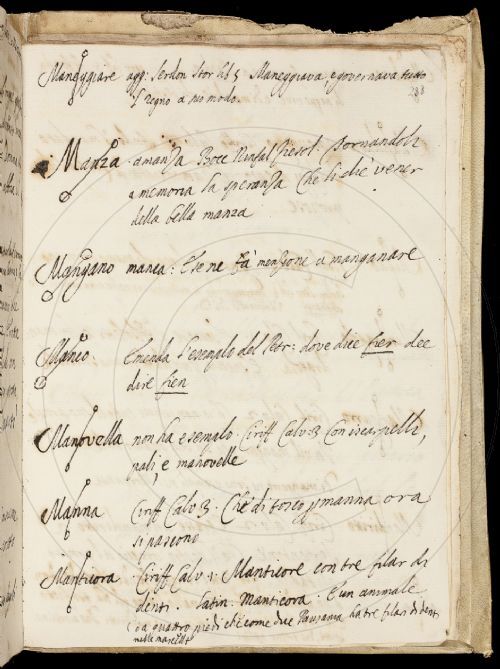 Maneggiare agg: Serdon Stor lib 5 Maneggiava, e governava tutto
'l regno a suo modo.
288
Manza amanza Bocc Ninfal Fiesol: Tornandoli
a memoria la speranza Che li diè vener
della bella manza
Mangano manca: Se ne fà menzione a manganare
Manco Emenda l'esemplo del Petr: dove dice fier dee
dire fien
Manovella non ha esemplo. Ciriff Calv: 3 Con iscarpelli,
pali, e manovelle
Manna Ciriff Calv 3. Che di tosco p manna ora
si pascono
Manticora Ciriff Calv 1. Manticore con tre filar di
denti. Latin. Manticora. È un animale
da quattro piedi che come dice Pausania ha tre filar di denti
nelle mascelle